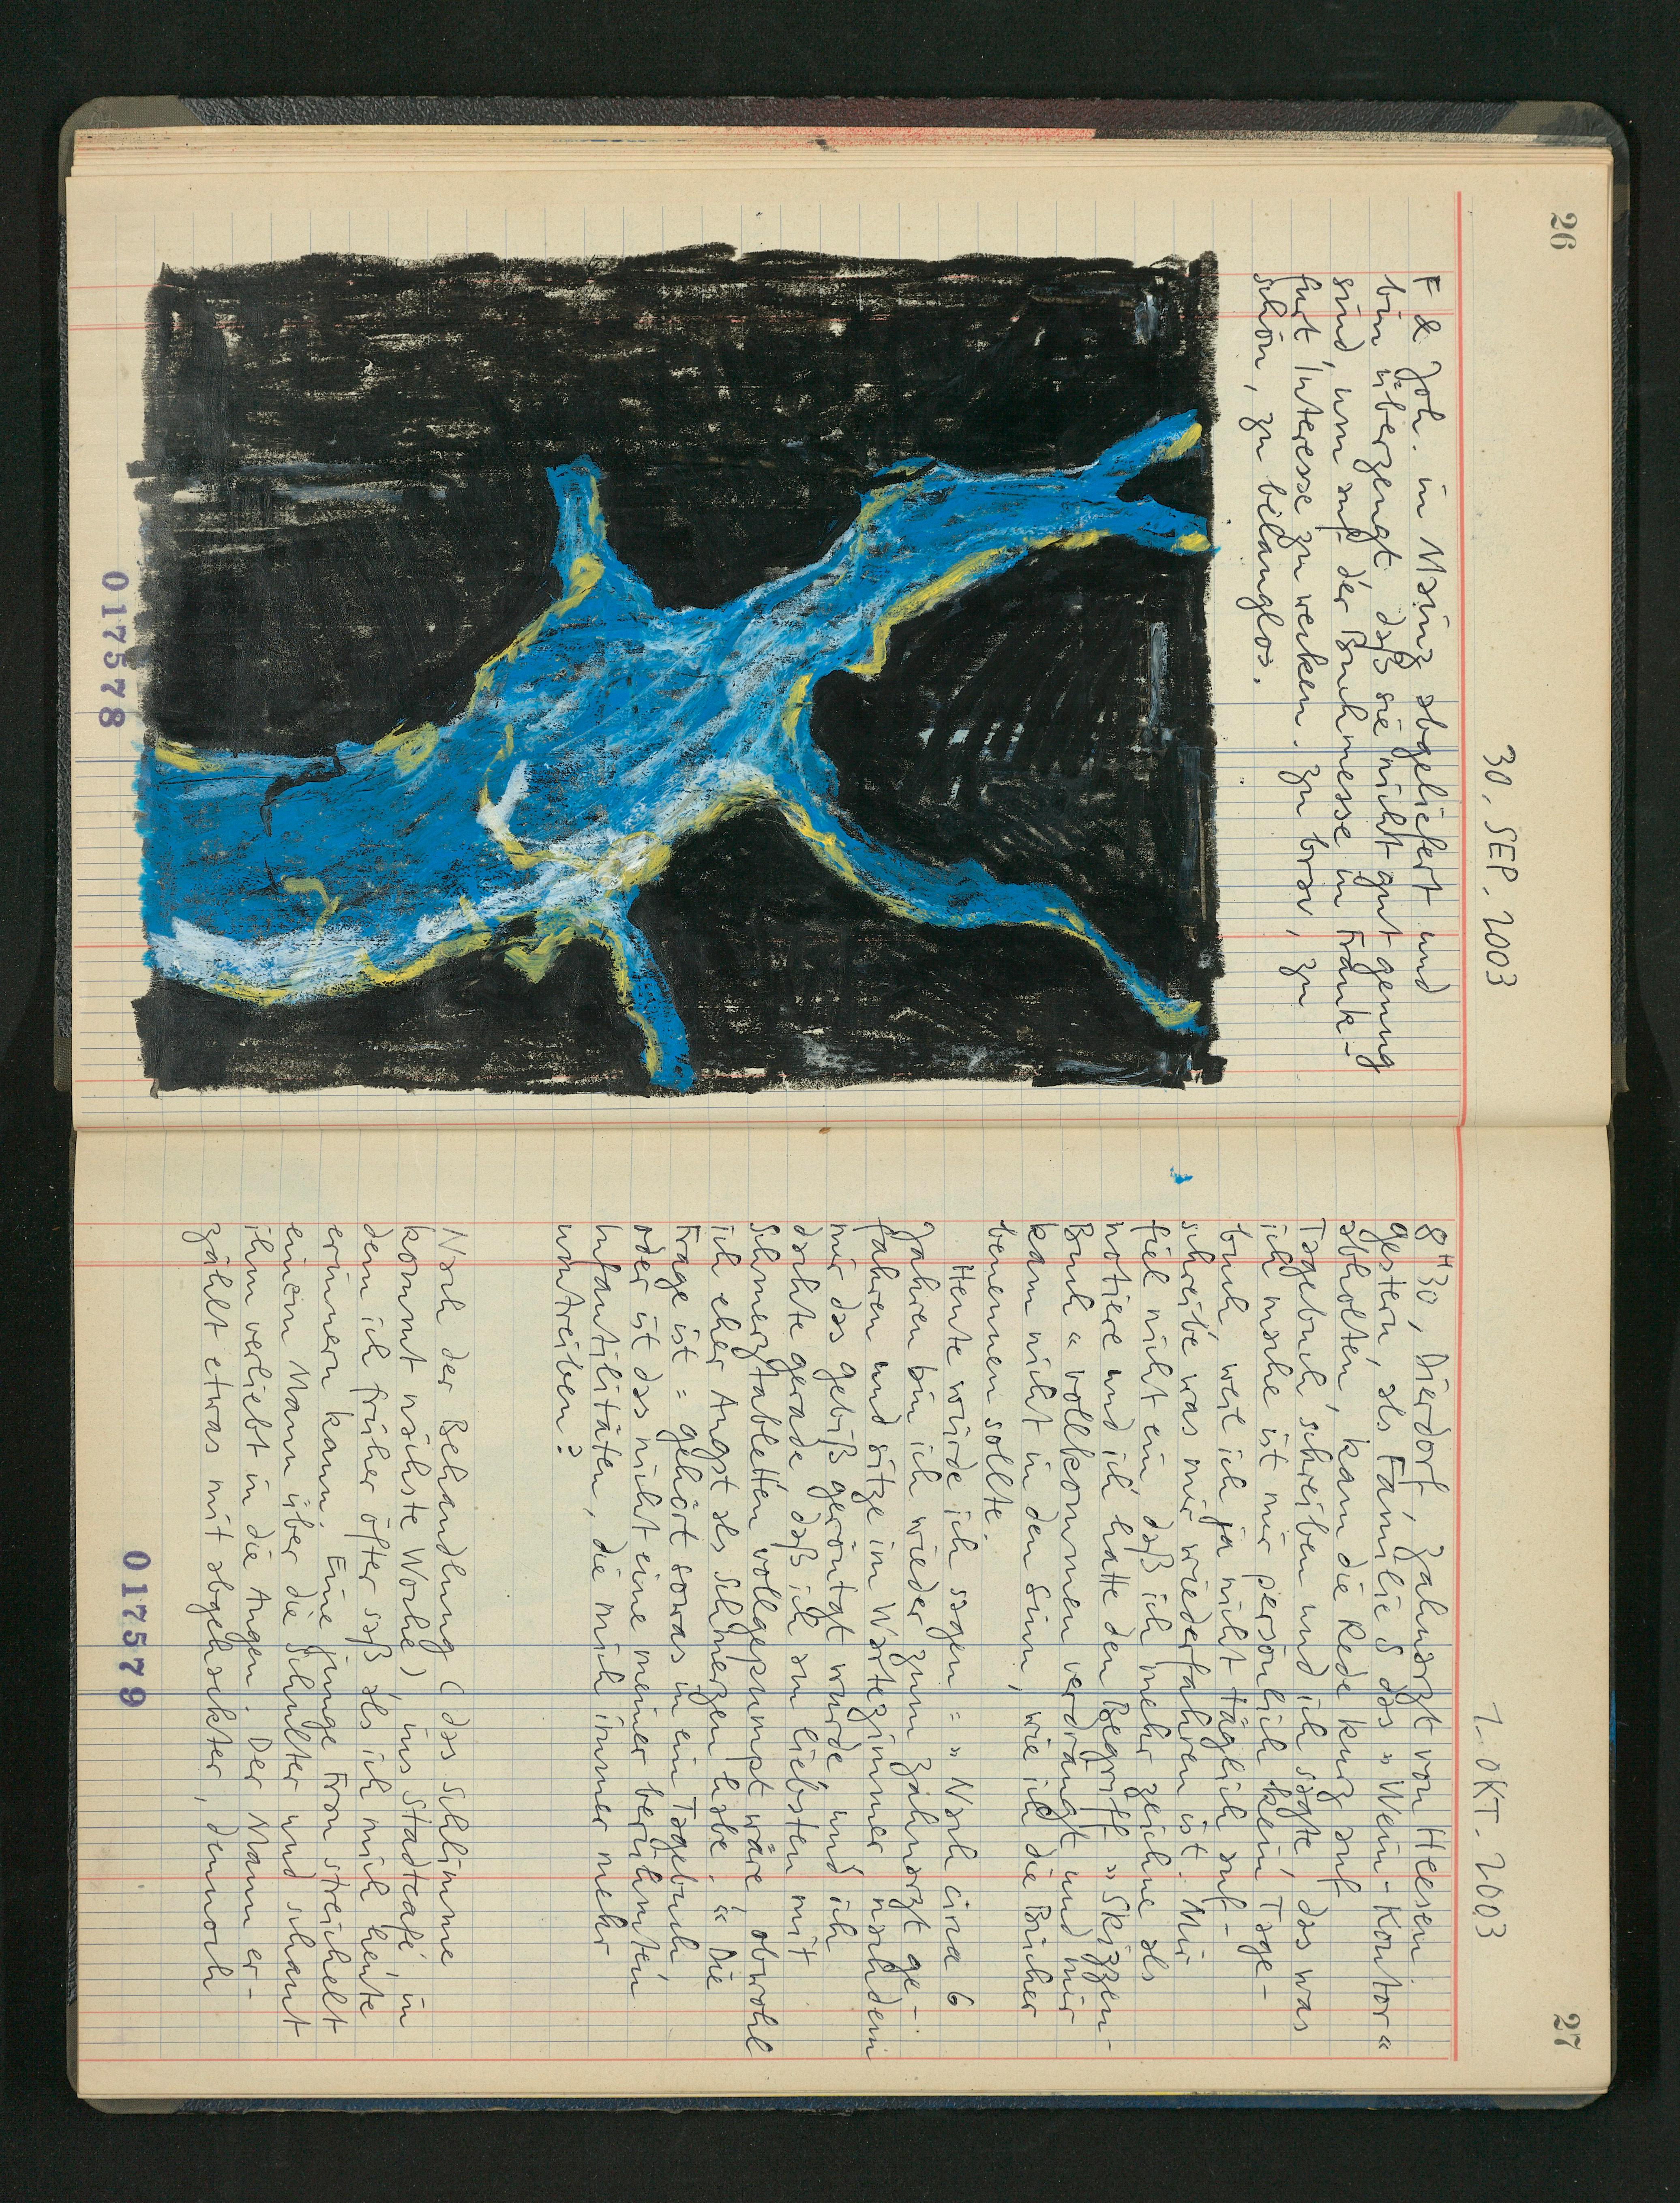 26
30. SEP. 2003
F & Joh. in Mainz abgeliefert und
bin überzeugt, daß sie nicht gut genug
sind, um auf der Buchmesse in Frank-
furt Interesse zu wecken. Zu brav, zu
schön, zu belanglos.
017578
27
1. OKT. 2003
8H30, Dierdorf, Zahnarzt von Heesen.
gestern, als Familie S das »Wein-Kontor«
abholten, kam die Rede kurz auf
Tagebuch schreiben und ich sagte, das was
ich mache ist mir persönlich kein Tage-
buch, weil ich ja nicht täglich auf-
schreibe was mir wiederfahren ist. Mir
fiel nicht ein, daß ich mehr zeichne als
notiere und ich hatte den Begriff »Skizzen-
Buch« vollkommen verdrängt und mir
kam nicht in den Sinn, wie ich die Bücher
benennen sollte.
Heute würde ich sagen = »Nach circa 6
Jahren bin ich wieder zum Zahnarzt ge-
fahren und sitze im Wartezimmer nachdem
mir das gebiß geröntgt wurde und ich
dachte gerade, daß ich am liebsten mit
Schmerztabletten vollgepumpt wäre, obwohl
ich eher Angst als Schmerzen habe.« Die
Frage ist = gehört sowas in ein Tagebuch
oder ist das nicht eine meiner berühmten
Infantilitäten, die mich immer mehr
umtreiben?
Nach der Behandlung (das schlimme
kommt nächste Woche) ins Stadtcafé, in
dem ich früher öfter saß als ich mich heute
erinnern kann. Eine junge Frau streichelt
einem Mann über die Schulter und schaut
ihm verliebt in die Augen. Der Mann er-
zählt etwas mit abgehackter, dennoch
017579